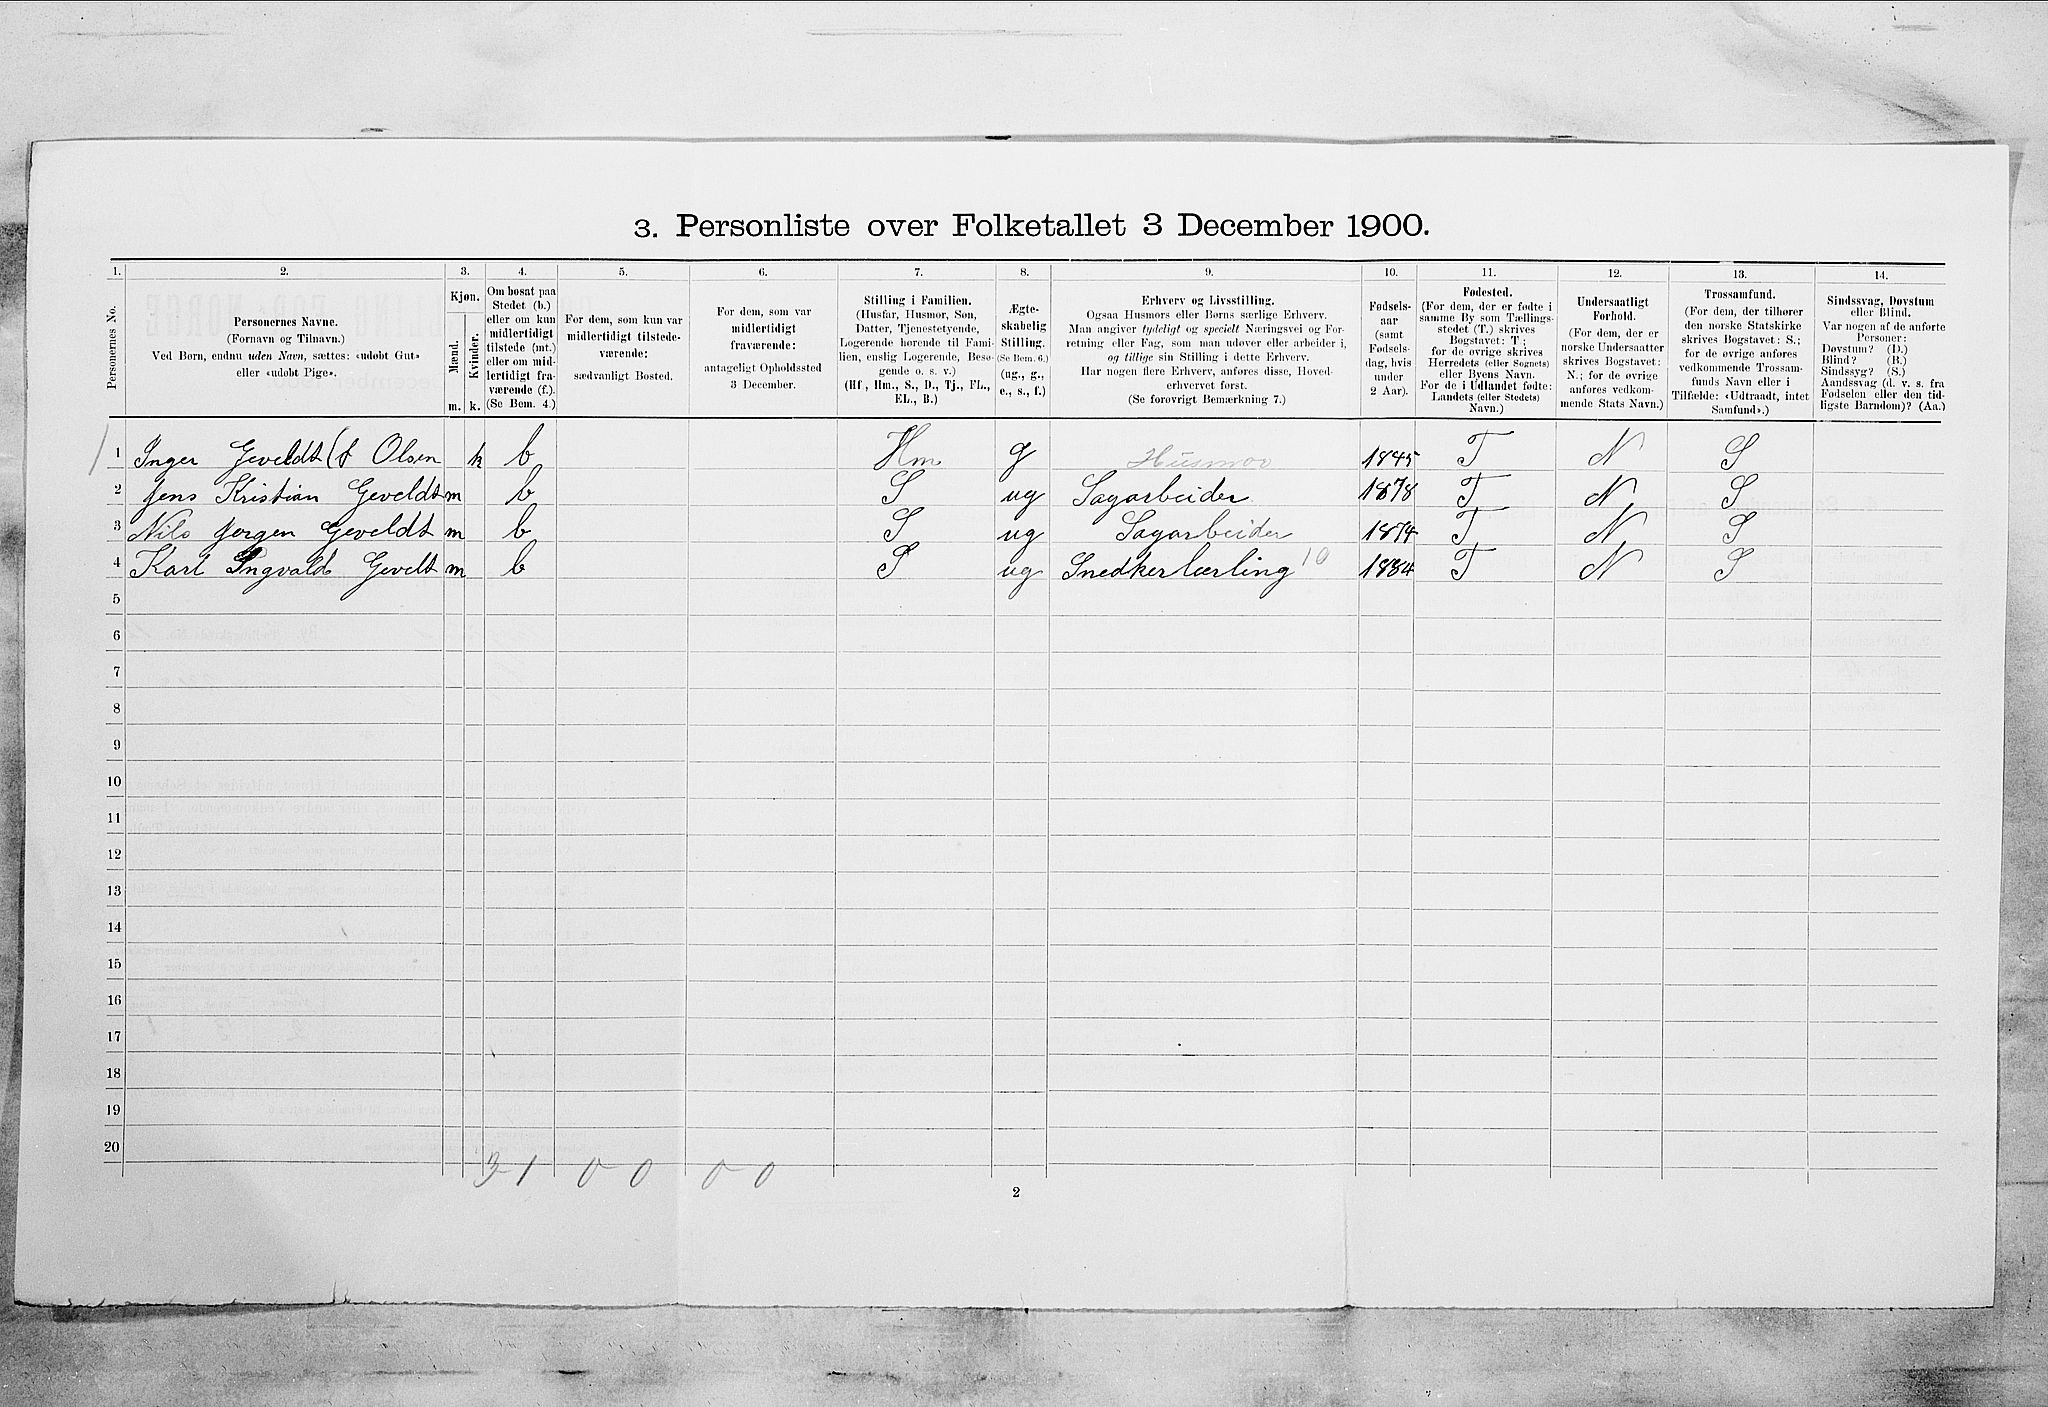 3. Personliste over Folketallet 3 December 1900.
1. 2. 3. 4. 5. 6. 7. 8. 9. 10. 11. 12. 13. 14.
Personernes No.
Personernes Navne.
(Fornavn og Tilnavn.)
Ved Børn, endnu uden Navn, sættes: «udøbt Gut»
eller «udøbt Pige».
Kjøn.
Mænd.
Kvinder.
m. k.
Om bosat paa
Stedet (b.)
eller om kun
midlertidigt
tilstede (mt.)
eller om mid-
lertidigt fra-
værende (f.).
(Se Bem. 4.)
For dem, som kun var
midlertidigt tilstede-
værende:
sædvanligt Bosted.
For dem, som var
midlertidigt
fraværende:
antageligt Opholdssted
3 December.
Stilling i Familien.
(Husfar, Husmor, Søn,
Datter, Tjenestetyende,
Logerende hørende til Fami-
lien, enslig Logerende, Besø-
gende o. s. v.)
(Hf., Hm., S., D., Tj., FL.,
EL., B.)
Ægte-
skabelig
Stilling.
(Se Bem. 6.)
(ug., g.,
e., s., f.)
Erhverv og Livsstilling.
Ogsaa Husmors eller Børns særlige Erhverv.
Man angiver tydeligt og specielt Næringsvei og For-
retning eller Fag, som man udøver eller arbeider i,
og tillige sin Stilling i dette Erhverv.
Har nogen flere Erhverv, anføres disse, Hoved-
erhvervet først.
(Se forøvrigt Bemærkning 7.)
Fødsels-
aar
(samt
Fødsels-
dag, hvis
under
2 Aar).
Fødested.
(For dem, der er fødte i
samme By som Tællings-
stedet (T.) skrives
Bogstavet: T;
for de øvrige skrives
Herredets (eller Sognets)
eller Byens Navn.
For de i Udlandet fødte:
Landets (eller Stedets)
Navn.)
Undersaatligt
Forhold.
(For dem, der er
norske Undersaatter
skrives Bogstavet:
N.; for de øvrige
anføres vedkom-
mende Stats Navn.)
Trossamfund.
(For dem, der tilhører
den norske Statskirke
skrives Bogstavet: S.;
for de øvrige anføres
vedkommende Trossam-
funds Navn eller i
Tilfælde: «Udtraadt, intet
Samfund».)
Sindssvag, Døvstum
eller Blind.
Var nogen af de anførte
Personer:
Døvstum? (D.)
Blind? (B.)
Sindssyg? (S.)
Aandssvag (d. v. s. fra
Fødselen eller den tid-
ligste Barndom)? (Aa.)
1 Inger Geveldt (f Olsen k b Hm g Husmor 1845 T N S
2 Jens Kristian Geveldt m b S ug Sagarbeider 1878 T N S
3 Nils Jørgen Geveldt m b S ug Sagarbeider 1874 T N S
4 Karl Ingvald Gevelt m b S ug Snedkerlærling 10 1884 T N S
5
6
7
8
9
10
11
12
13
14
15
16
17
18
19
20
3 1 0 0 0 0
2